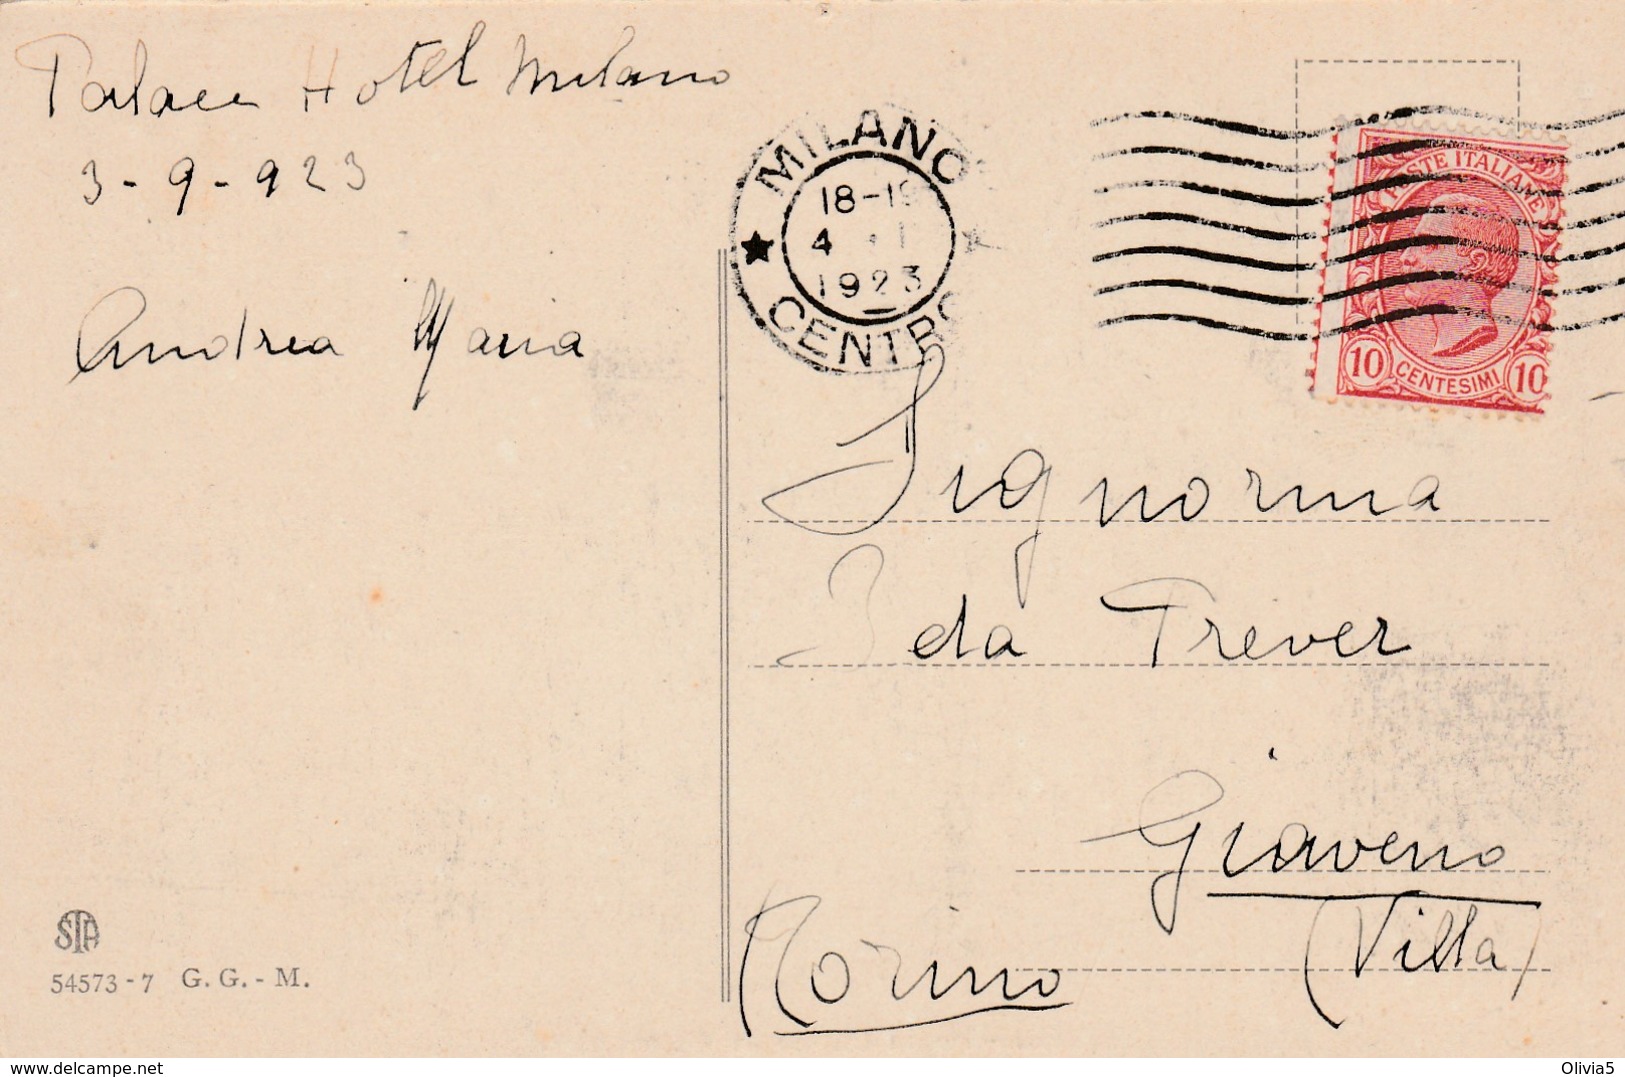 Palace Hotel Milano
3-9-923
Andrea Maria
MILANO
18-19
4
1923
CENTRO
POSTE ITALIANE
10 CENTESIMI 10
Signorina
Ida Trever
Giaveno
(Villa)
(Torino)
STA
54573-7 G. G. - M.
delcampe.net
Olivia5